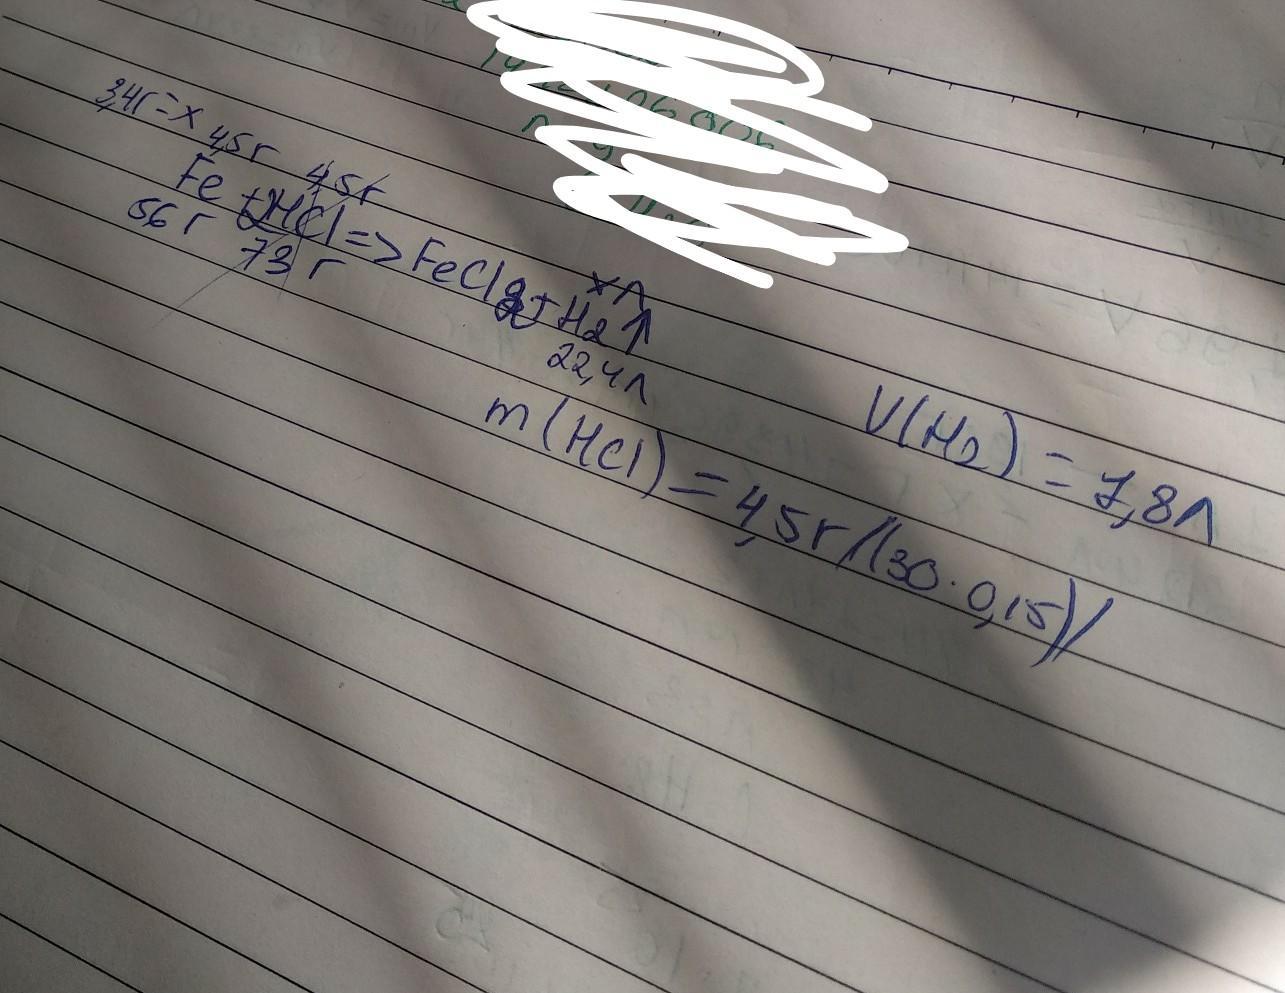 3,4г = x
4,5г 4,5г xл
Fe + 2HCl => FeCl2 + H2↑
56 г 73 г 22,4л
V(H2) = 1,8л
m(HCl) = 4,5г//(30·0,15)//